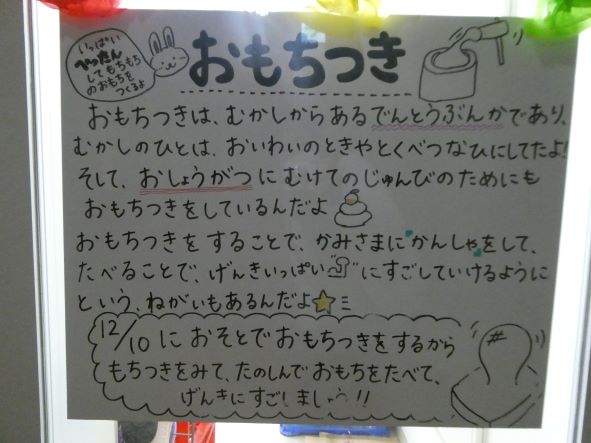 いっぱい
ぺったん
してもちもち
のおもちを
つくるよ
おもちつき
おもちつきは、むかしからあるでんとうぶんかであり、
むかしのひとは、おいわいのときやとくべつなひにしてたよ!
そして、おしょうがつにむけてのじゅんびのためにも
おもちつきをしているんだよ
おもちつきをすることで、かみさまに"かんしゃ"をして、
たべることで、げんきいっぱいにすごしていけるように
という、ねがいもあるんだよ
12/10におそとでおもちつきをするから
もちつきをみて、たのしんでおもちをたべて、
げんきにすごしましょう!!